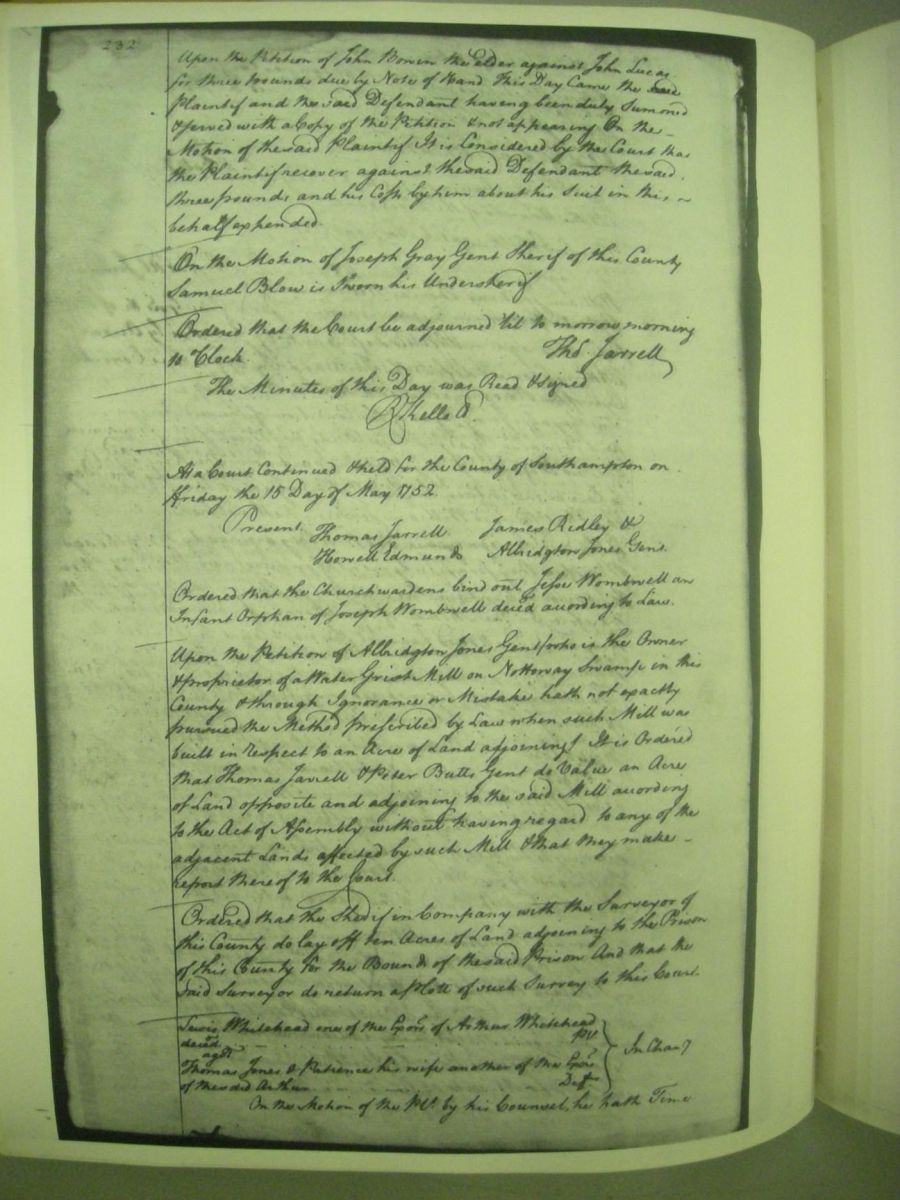 232
Upon the Petition of John Bowin the Elder against John Lucas
for three pounds due by Note of Hand This Day Came the said
Plaintif and the said Defendant having been duly Sumoned
& served with a Copy of the Petition & not appearing On the
Motion of the said Plaintif It is Considered by the Court that
the Plaintif recover against the said Defendant the said
three pounds and his Costs by him about his Suit in this
behalf expended
On the Motion of Joseph Gray Gent Sherif of this County
Samuel Blow is Sworn his Undersherif
Ordered that the Court be adjourned 'til to morrow morning
10 Clock. Thos. Jarrell
The Minutes of this Day was Read & signed
R Kello
At a Court Continued & held for the County of Southampton on
Friday the 15 Day of May 1752
Present Thomas Jarrell James Ridley &
Howell Edmunds Albridgton Jones Gent.
Ordered that the Churchwardens bind out Jesse Wombwell an
Infant Orphan of Joseph Wombwell deced according to Law.
Upon the Petition of Albridgton Jones Gent (who is the Owner
& proprietor of a Water Grist Mill on Nottoway Swamp in this
County & through Ignorance or Mistake hath not exactly
pursued the Method prescribed by Law when such Mill was
built in respect to an Acre of Land adjoining) It is Ordered
that Thomas Jarrell & Peter Butts Gent do Value an Acre
of Land opposite and adjoining to the said Mill according
to the Act of Assembly without having regard to any of the
adjacent Lands affected by such Mill & that they make
report thereof to the Court.
Ordered that the Sherif in Company with the Surveyor of
this County do lay off ten Acres of Land adjoining to the Prison
of this County for the Bounds of the said Prison And that the
said Surveyor do return a plott of such Survey to this Court.
Lewis Whitehead one of the Exors of Arthur Whitehead
deced Plt
agst In Chary
Thomas Jones & Patience his wife another of the Exors
of the sd Arthur Defts
On the Motion of the Plt by his Counsel, he hath Time